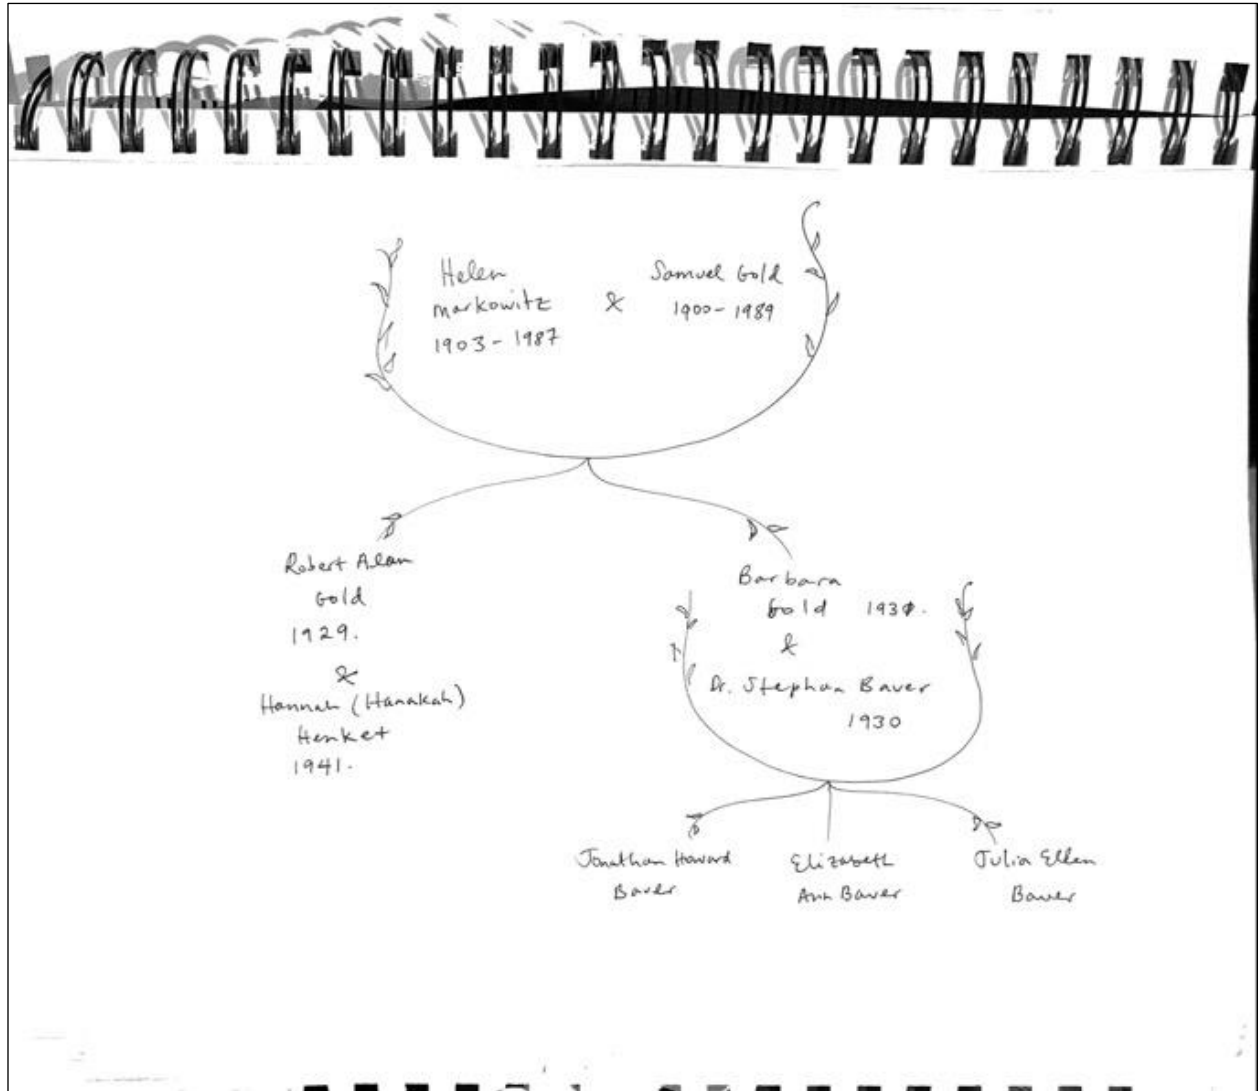 Helen
Markowitz
1903 - 1987
&
Samuel Gold
1900 - 1989
Robert Alan
Gold
1929.
&
Hannah (Hanakah)
Henket
1941.
Barbara
Gold 1930.
&
Dr. Stephan Bauer
1930
Jonathan Howard
Bauer
Elizabeth
Ann Bauer
Julia Ellen
Bauer